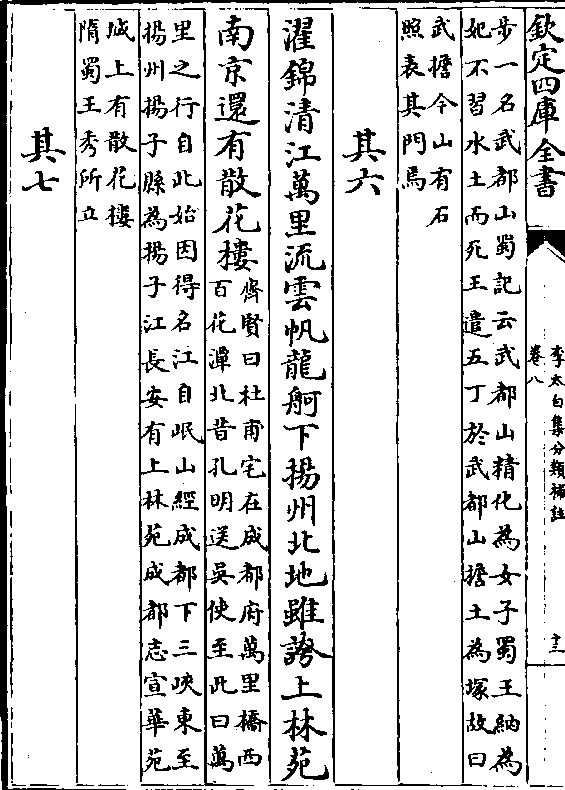 欽定四庫全書
李太白集分類補註
卷八
十三
步一名武都山蜀記云武都山精化為女子蜀王納為
妃不習水土而死王遣五丁於武都山擔土為塚故曰
武擔今山有石
照表其門焉
其六
濯錦清江萬里流雲帆龍舸下揚州北地雖誇上林苑
南京還有散花樓
齊賢曰杜甫宅在成都府萬里橋西
百花潭北昔孔明送吳使至此曰萬
里之行自此始因得名江自岷山經成都下三峽東至
揚州揚子縣為揚子江長安有上林苑成都志宣華苑
城上有散花樓
隋蜀王秀所立
其七